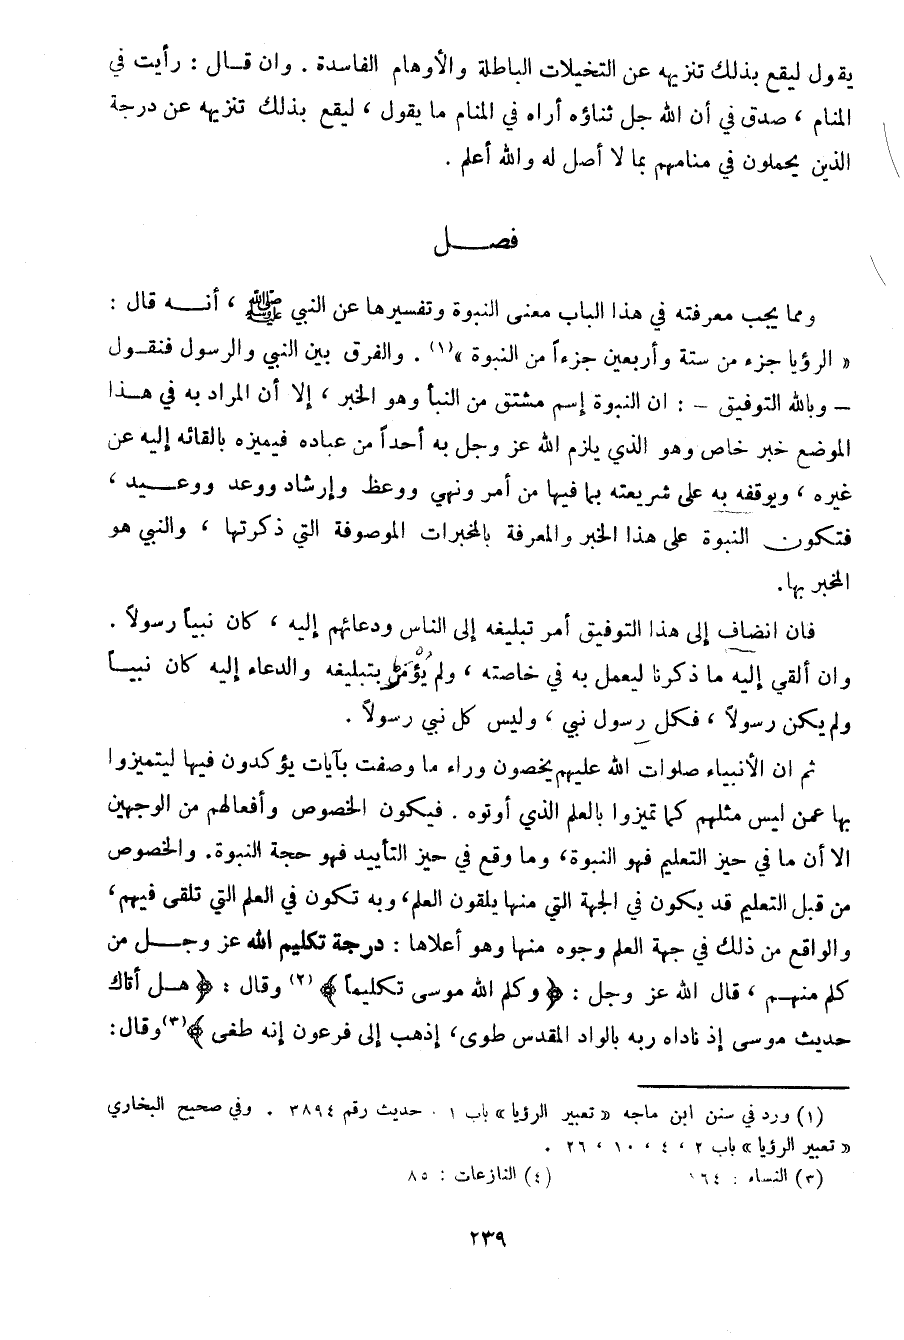 يقول ليقع بذلك تنزيهه عن التخيلات الباطلة والأوهام الفاسدة . وان قــال : رأيت في
المنام ، صدق في أن الله جل ثناؤه أراه في المنام ما يقول ، ليقع بذلك تنزيهه عن درجة
الذين يحملون في منامهم بما لا أصل له والله أعلم .
فصـــل
ومما يجب معرفته في هذا الباب معنى النبوة وتفسيرها عن النبي ﷺ ، أنـــه قال :
« الرؤيا جزء من ستة وأربعين جزءاً من النبوة »(١) . والفرق بين النبي والرسول فنقـول
– وبالله التوفيق – : ان النبوة إسم مشتق من النبأ وهو الخبر ، إلا أن المراد به في هــذا
الموضع خبر خاص وهو الذي يلزم الله عز وجل به أحداً من عباده فيميزه بالقائه إليه عن
غيره ، ويوقفه به على شريعته بما فيها من أمر ونهي ووعظ وإرشاد ووعد ووعـــيد ،
فتكون النبوة على هذا الخبر والمعرفة بالمخبرات الموصوفة التي ذكرتها ، والنبي هو
المخبر بها.
فان انضاف إلى هذا التوفيق أمر تبليغه إلى الناس ودعائهم إليه ، كان نبياً رسولاً .
وان ألقي إليه ما ذكرنا ليعمل به في خاصته ، ولم يُؤمَرْ بتبليغه والدعاء إليه كان نبيــاً
ولم يكن رسولاً ، فكل رسول نبي ، وليس كل نبي رسولاً .
ثم ان الأنبياء صلوات الله عليهم يخصون وراء ما وصفت بآيات يؤكدون فيها ليتميزوا
بها عمن ليس مثلهم كما تميزوا بالعلم الذي أوتوه . فيكون الخصوص وأفعالهم من الوجهين
الا أن ما في حيز التعليم فهو النبوة، وما وقع في حيز التأييد فهو حجة النبوة. والخصوص
من قبل التعليم قد يكون في الجهة التي منها يلقون العلم، وبه تكون في العلم التي تلقى فيهم،
والواقع من ذلك في جهة العلم وجوه منها وهو أعلاها : درجة تكليم الله عز وجـــل من
كلم منهـم ، قال الله عز وجل : ﴿ وكلم الله موسى تكليماً ﴾ (٢) وقال : ﴿ هــل أتاك
حديث موسى إذ ناداه ربه بالواد المقدس طوى، إذهب إلى فرعون إنه طغى ﴾(٣) وقال:
(١) ورد في سنن ابن ماجه « تعبير الرؤيا » باب ١ . حديث رقم ٣٨٩٤ . وفي صحيح البخاري
« تعبير الرؤيا » باب ٢ ، ٤ ، ١٠ ، ٢٦ .
(٣) النساء : ١٦٤ (٤) النازعات : ٨٥
٢٣٩